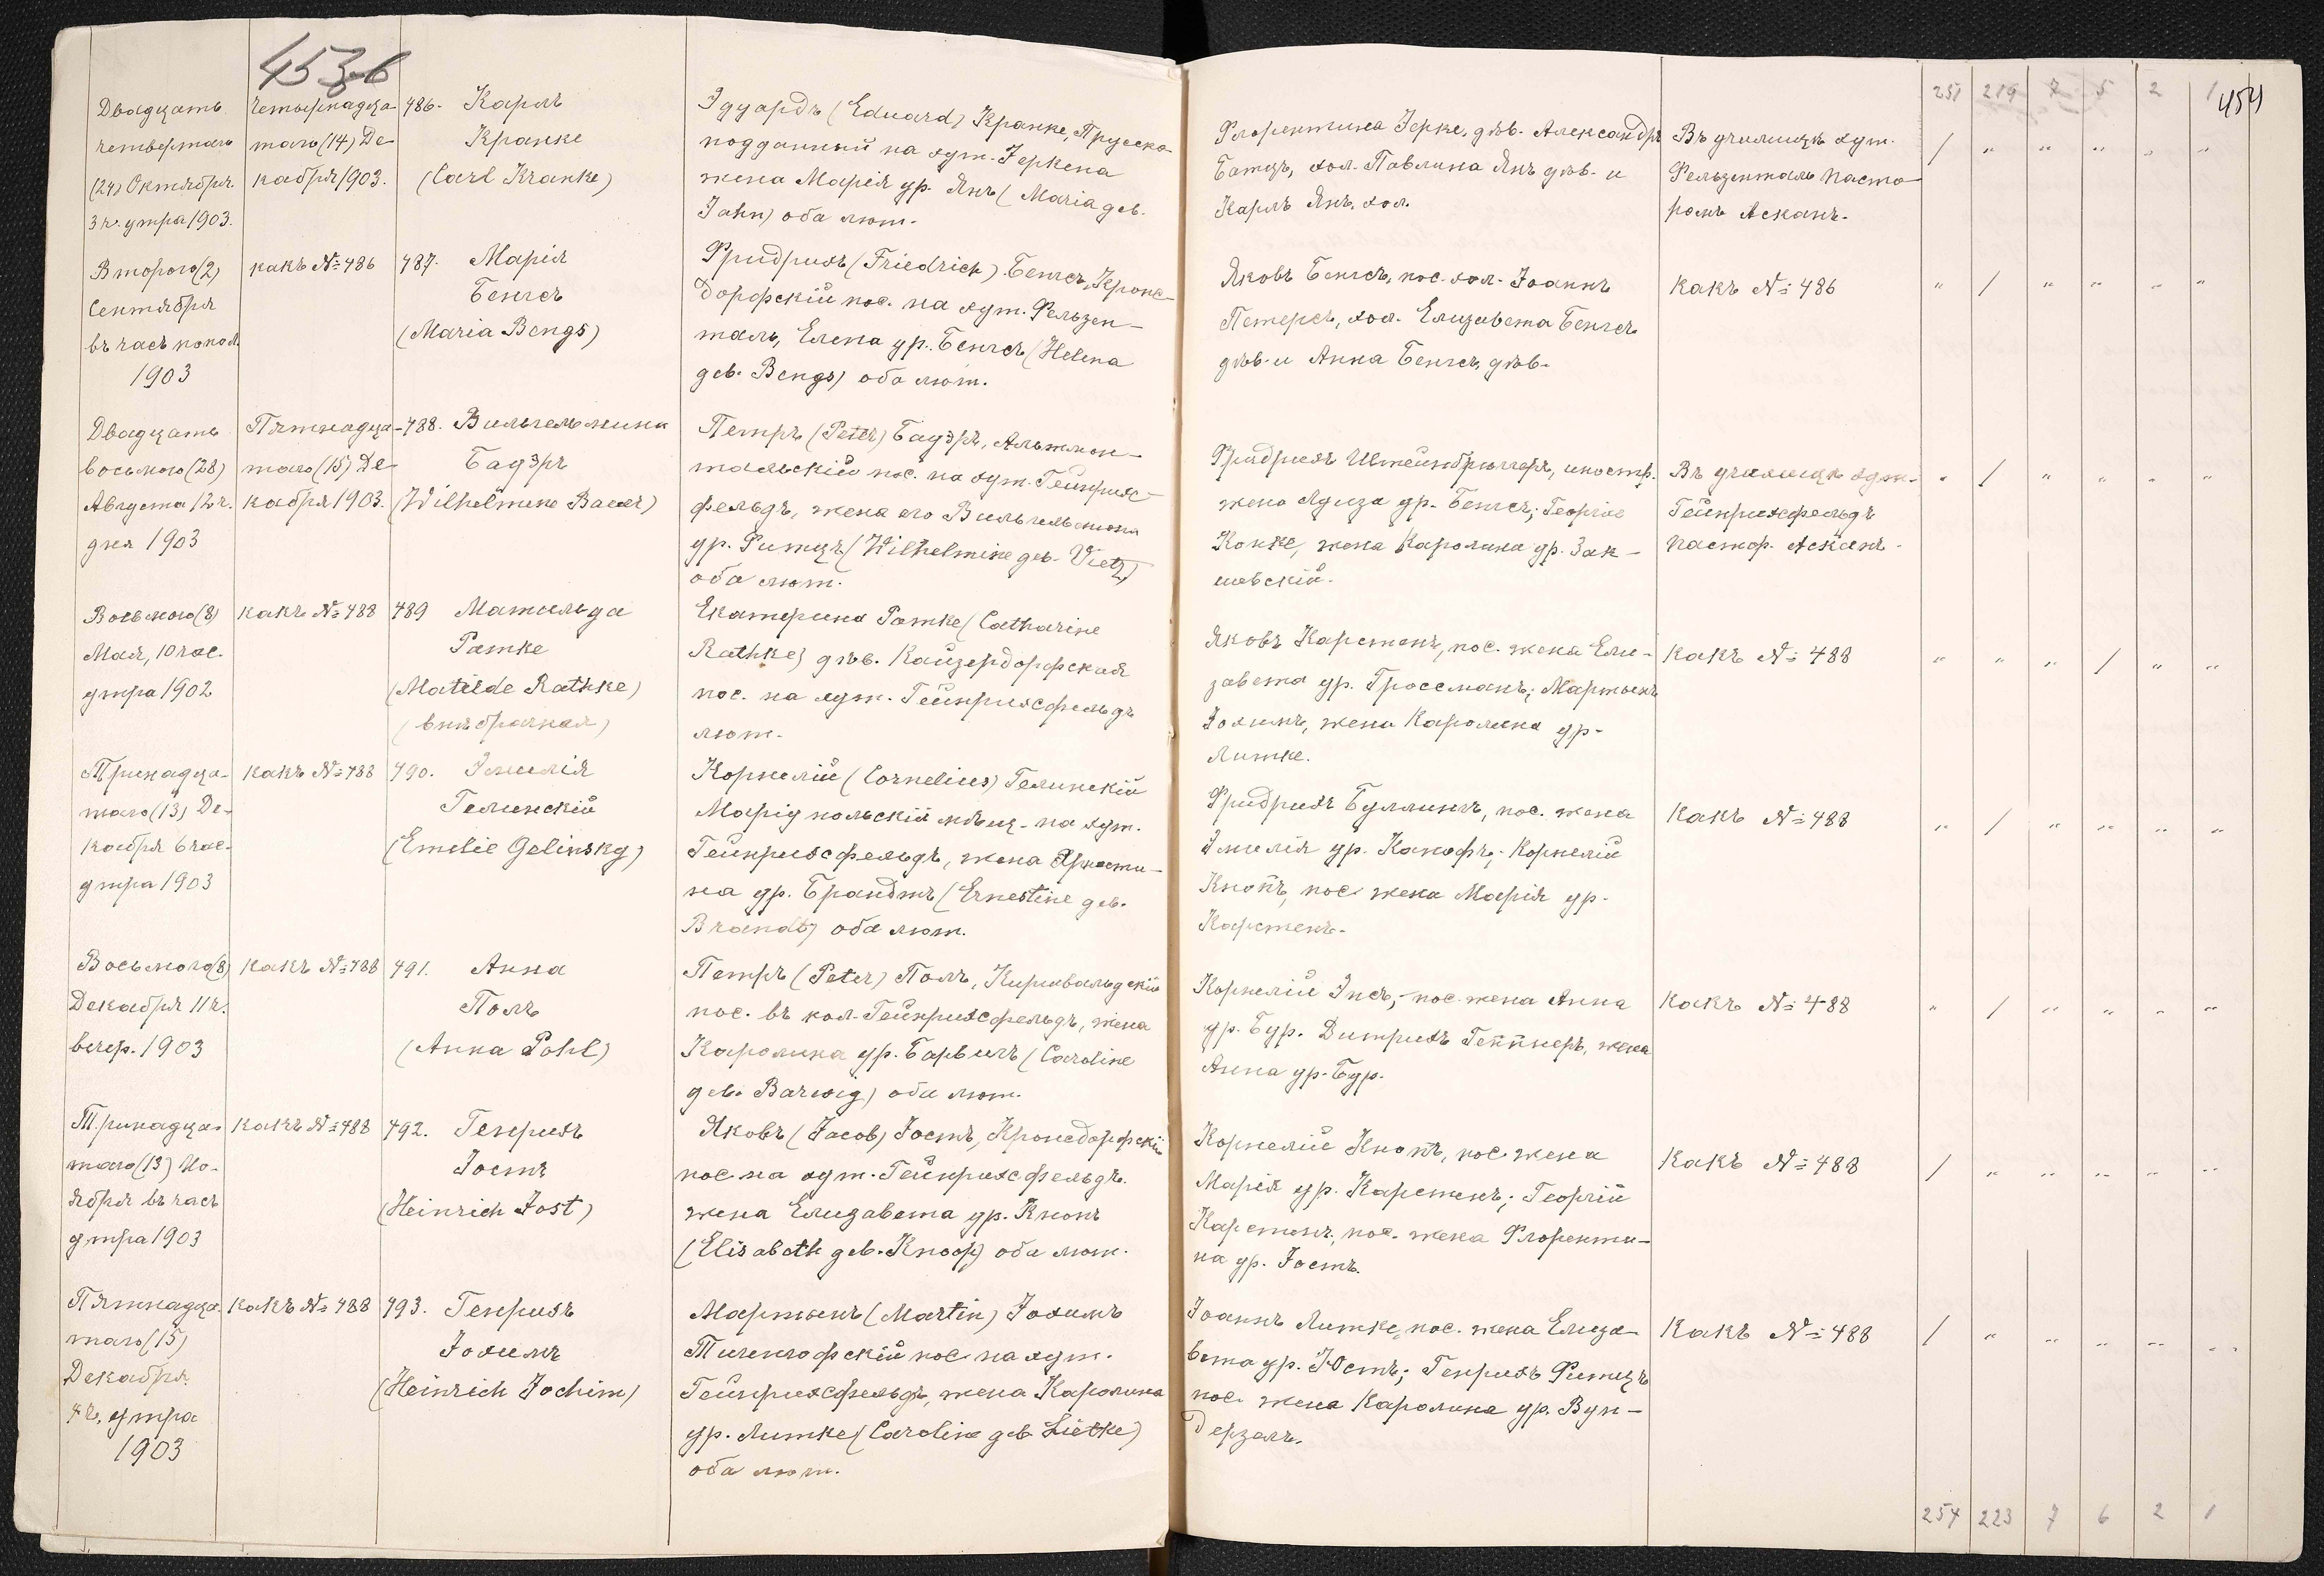 453 б
Двадцать
четвертаго
(24) Октября
3 ч. утра 1903.
Четырнадца-
таго (14) Де-
кабря 1903.
486. Карлъ
Кранке
(Carl Kranke)
Эдуардъ (Eduard) Кранке, Прусско-
подданный на хут. Геркена
жена Марія ур. Янъ (Maria geb.
Jahn) оба лют.
Второго (2)
Сентября
въ часъ попол.
1903
какъ № 486
487. Марія
Бенгсъ
(Maria Bengs)
Фридрихъ (Friedrich) Бенгсъ, Кронс-
дорфскій пос. на хут. Фельзен-
таль, Елена ур. Бенгсъ (Helena
geb. Bengs) оба лют.
Двадцать
восьмого (28)
Августа 12 ч.
дня 1903
Пятнадца-
таго (15) Де-
кабря 1903.
488. Вильгельмина
Бауэръ
(Wilhelmine Bauer)
Петръ (Peter) Бауэръ, Альтмон-
тальскій пос. на хут. Гейнрихс-
фельдъ, жена его Вильгельмина
ур. Фитцъ (Wilhelmine geb. Vietz)
оба лют.
Восьмого (8)
Мая, 10 час.
утра 1902
какъ № 488
489 Матильда
Ратке
(Matilde Rathke)
(внѣбрачная)
Екатерина Ратке (Catharine
Rathke) дѣв. Кайзердорфская
пос. на хут. Гейнрихсфельдъ
лют.
Тринадца-
таго (13) Де-
кабря 6 час.
утра 1903
какъ № 488
490. Эмилія
Гелинскій
(Emilie Gelinsky)
Корнелій (Cornelius) Гелинскій
Маріупольскій мѣщ. на хут.
Гейнрихсфельдъ, жена Эрнести-
на ур. Брандтъ (Ernestine geb.
Brandt) оба лют.
Восьмого (8)
Декабря 11 ч.
вечер. 1903
какъ № 488
491. Анна
Полъ
(Anna Pohl)
Петръ (Peter) Полъ, Кирхвальдскій
пос. въ кол. Гейнрихсфельдъ, жена
Каролина ур. Барвигъ (Caroline
geb. Barwig) оба лют.
Тринадца-
таго (13) Но-
ября въ часъ
утра 1903
какъ № 488
492. Генрихъ
Іостъ
(Heinrich Jost)
Яковъ (Jacob) Іостъ, Кронсдорфскій
пос. на хут. Гейнрихсфельдъ.
жена Елизавета ур. Кнопъ
(Elisabeth geb. Knoop) оба лют.
Пятнадца-
таго (15)
Декабря
4 ч. утра
1903
какъ № 488
493. Генрихъ
Іохимъ
(Heinrich Jochim)
Мартынъ (Martin) Іохимъ
Тигенгофскій пос. на хут.
Гейнрихсфельдъ, жена Каролина
ур. Литке (Caroline geb. Lietke)
оба лют.
454
251 219 7 5 2 1
Флорентина Герке, дѣв. Александръ
Батцъ, хол. Павлина Янъ дѣв. и
Карлъ Янъ, хол.
Въ училищѣ хут.
Фельзенталь пасто-
ромъ Асканъ.
/ " " " " "
Яковъ Бенгсъ, пос. хол. Іоаннъ
Петерсъ, хол. Елизавета Бенгсъ
дѣв. и Анна Бенгсъ, дѣв.
какъ № 486
" / " " " "
Фридрихъ Штейнбрюгеръ, иностр.
жена Луиза ур. Бенгсъ; Георгій
Конке, жена Каролина ур. Зак-
шевскій.
Въ училищѣ хут.
Гейнрихсфельдъ
пастор. Асканъ.
" / " " " "
Яковъ Карстенъ, пос. жена Ели-
завета ур. Гроссманъ; Мартынъ
Іохимъ, жена Каролина ур.
Литке.
какъ № 488
" " " / " "
Фридрихъ Буллингъ, пос. жена
Эмилія ур. Канофъ; Корнелій
Кнопъ, пос. жена Марія ур.
Карстенъ.
какъ № 488
" / " " " "
Корнелій Энсъ, пос. жена Анна
ур. Бур. Дитрихъ Геппнеръ, жена
Анна ур. Бур.
какъ № 488
" / " " " "
Корнелій Кнопъ, пос. жена
Марія ур. Карстенъ; Георгій
Карстенъ, пос. жена Флоренти-
на ур. Іостъ.
какъ № 488
/ " " " " "
Іоаннъ Литке, пос. жена Елиза-
вета ур. Юстъ; Генрихъ Фитцъ
пос. жена Каролина ур. Вун-
дерзалъ.
какъ № 488
/ " " " " "
254 223 7 6 2 1